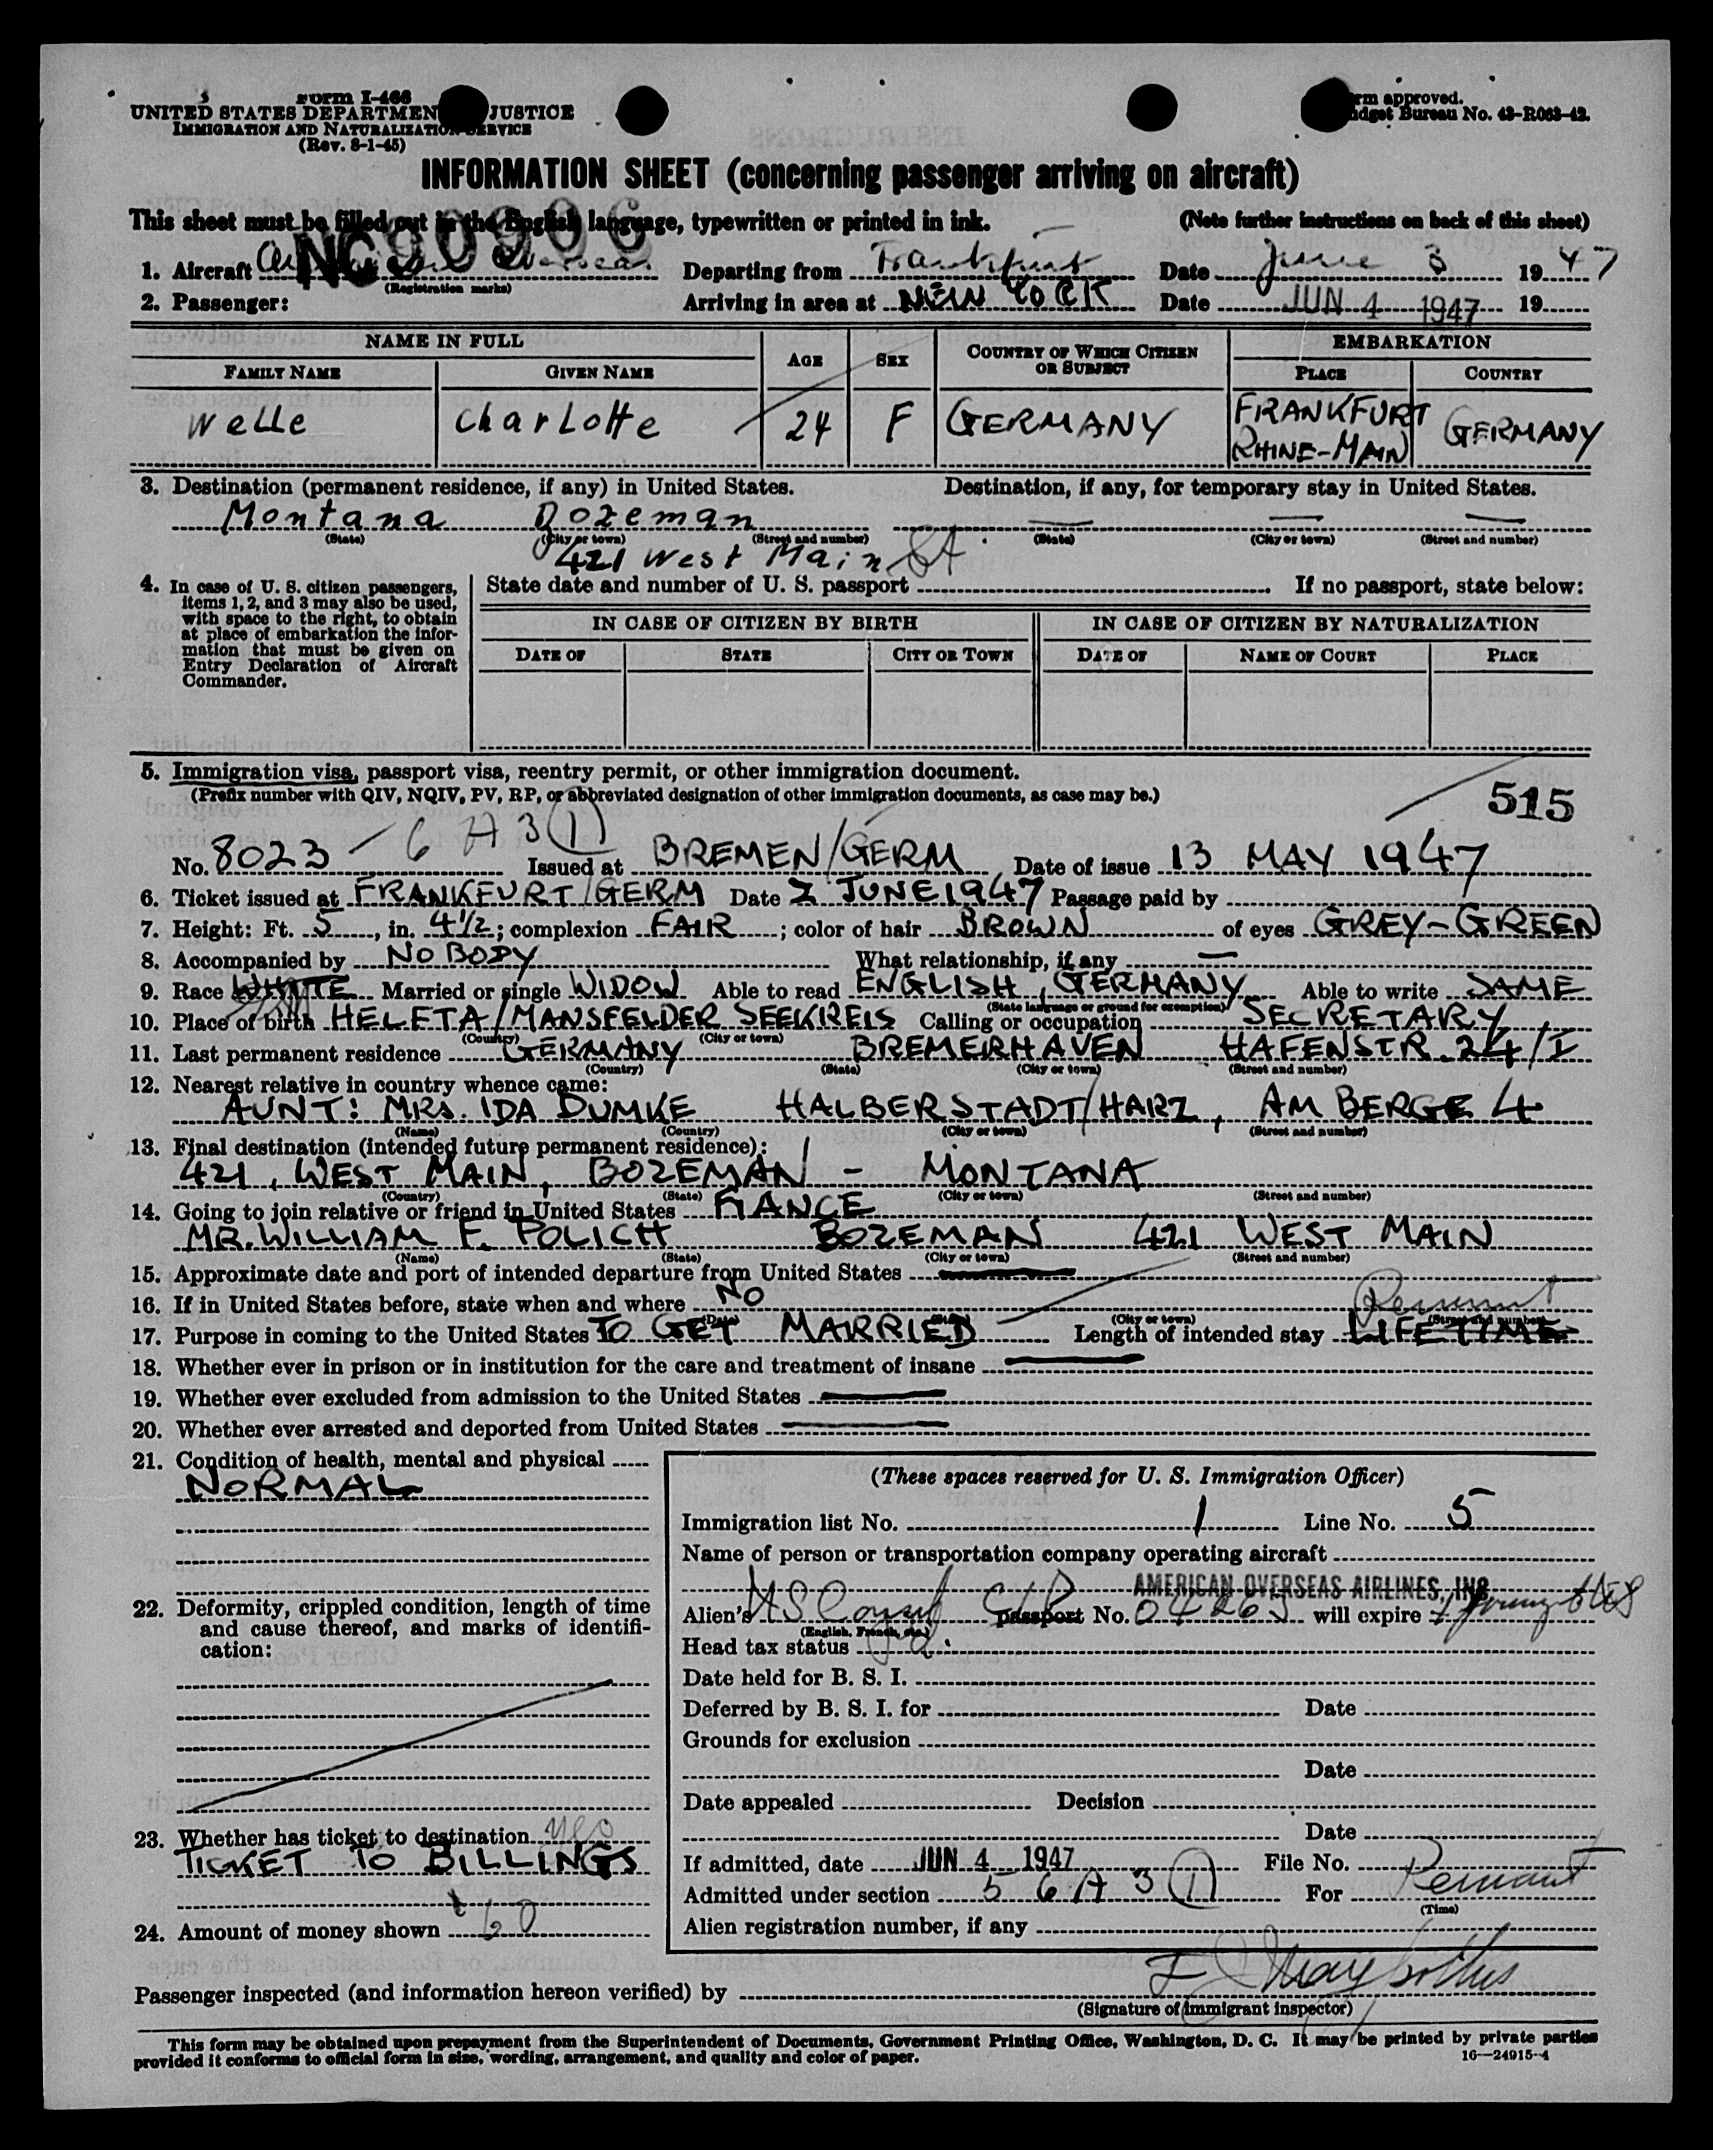 Form I-466
UNITED STATES DEPARTMENT JUSTICE
IMMIGRATION AND NATURALIZATION SERVICE
(Rev. 8-1-45)
Form approved.
Budget Bureau No. 43-R063-42.
INFORMATION SHEET (concerning passenger arriving on aircraft)
This sheet must be filled out in the English language, typewritten or printed in ink. (Note further instructions on back of this sheet)
NC90906
1. Aircraft Overseas Departing from Frankfurt Date June 3 1947
(Registration marks)
2. Passenger: Arriving in area at NEW YORK Date JUN 4 1947 19
NAME IN FULL AGE SEX COUNTRY OF WHICH CITIZEN OR SUBJECT EMBARKATION
FAMILY NAME GIVEN NAME PLACE COUNTRY
Welle Charlotte 24 F GERMANY FRANKFURT RHINE-MAIN GERMANY
3. Destination (permanent residence, if any) in United States. Destination, if any, for temporary stay in United States.
Montana Bozeman — — —
(State) (City or town) (Street and number) (State) (City or town) (Street and number)
421 West Main St.
4. In case of U. S. citizen passengers, items 1, 2, and 3 may also be used, with space to the right, to obtain at place of embarkation the information that must be given on Entry Declaration of Aircraft Commander.
State date and number of U. S. passport If no passport, state below:
IN CASE OF CITIZEN BY BIRTH IN CASE OF CITIZEN BY NATURALIZATION
DATE OF STATE CITY OR TOWN DATE OF NAME OF COURT PLACE
5. Immigration visa, passport visa, reentry permit, or other immigration document.
(Prefix number with QIV, NQIV, PV, RP, or abbreviated designation of other immigration documents, as case may be.) 515
No. 8023 – 6 A 3 (1) Issued at BREMEN/GERM Date of issue 13 MAY 1947
6. Ticket issued at FRANKFURT/GERM Date 2 JUNE 1947 Passage paid by
7. Height: Ft. 5, in. 4½; complexion FAIR; color of hair BROWN of eyes GREY-GREEN
8. Accompanied by NOBODY What relationship, if any —
9. Race WHITE Married or single WIDOW Able to read ENGLISH, GERMANY Able to write SAME
(State language or ground for exemption)
10. Place of birth HELFTA/MANSFELDER SEEKREIS Calling or occupation SECRETARY
(Country) (City or town)
11. Last permanent residence GERMANY BREMERHAVEN HAFENSTR. 24/I
(Country) (State) (City or town) (Street and number)
12. Nearest relative in country whence came:
AUNT: MRS. IDA DUMKE HALBERSTADT/HARZ, AM BERGE 4
(Name) (Country) (City or town) (Street and number)
13. Final destination (intended future permanent residence):
421, WEST MAIN, BOZEMAN - MONTANA
(Country) (State) (City or town) (Street and number)
14. Going to join relative or friend in United States FIANCE
MR. WILLIAM F. POLICH BOZEMAN 421 WEST MAIN
(Name) (State) (City or town) (Street and number)
15. Approximate date and port of intended departure from United States
16. If in United States before, state when and where NO
(Date) (State) (City or town) (Street and number)
17. Purpose in coming to the United States TO GET MARRIED Length of intended stay LIFETIME
18. Whether ever in prison or in institution for the care and treatment of insane
19. Whether ever excluded from admission to the United States
20. Whether ever arrested and deported from United States
21. Condition of health, mental and physical
NORMAL
22. Deformity, crippled condition, length of time and cause thereof, and marks of identification:
23. Whether has ticket to destination yes
TICKET TO BILLINGS
24. Amount of money shown 60
(These spaces reserved for U. S. Immigration Officer)
Immigration list No. 1 Line No. 5
Name of person or transportation company operating aircraft
AMERICAN OVERSEAS AIRLINES, INC
Alien's US Consul passport No. will expire
(English, French, etc.)
Head tax status
Date held for B. S. I.
Deferred by B. S. I. for Date
Grounds for exclusion
Date
Date appealed Decision
Date
If admitted, date JUN 4 1947 File No.
Admitted under section 5 6 A 3 (1) For Permant
(Time)
Alien registration number, if any
Passenger inspected (and information hereon verified) by
(Signature of immigrant inspector)
This form may be obtained upon prepayment from the Superintendent of Documents, Government Printing Office, Washington, D. C. It may be printed by private parties
provided it conforms to official form in size, wording, arrangement, and quality and color of paper. 16—24915-4